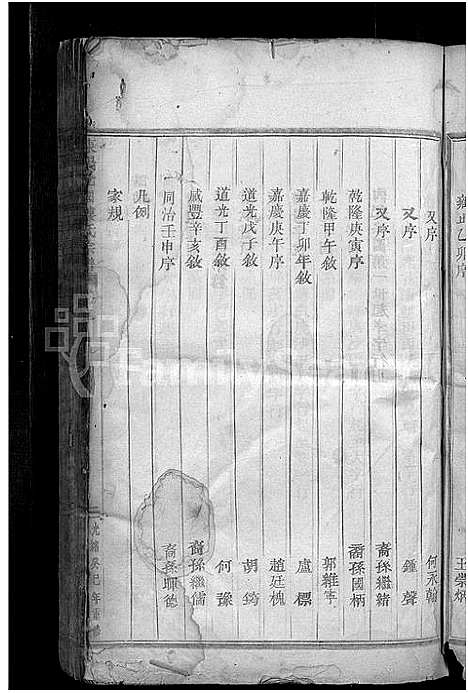 雍正乙卯序 王崇炳
又序 何永翰
又序 鍾聲
又序 裔孫繼緒
乾隆庚寅序 裔孫國柄
乾隆甲午敘 郭維
嘉慶丁卯年敘 盧標
嘉慶庚午序 趙廷槐
道光戊子敘 胡筠
道光丁酉敘 何豫
咸豐辛亥敘 裔孫繼儒
同治壬申序 裔孫師德
凡例
家規
光緒癸巳年
FamilySearch